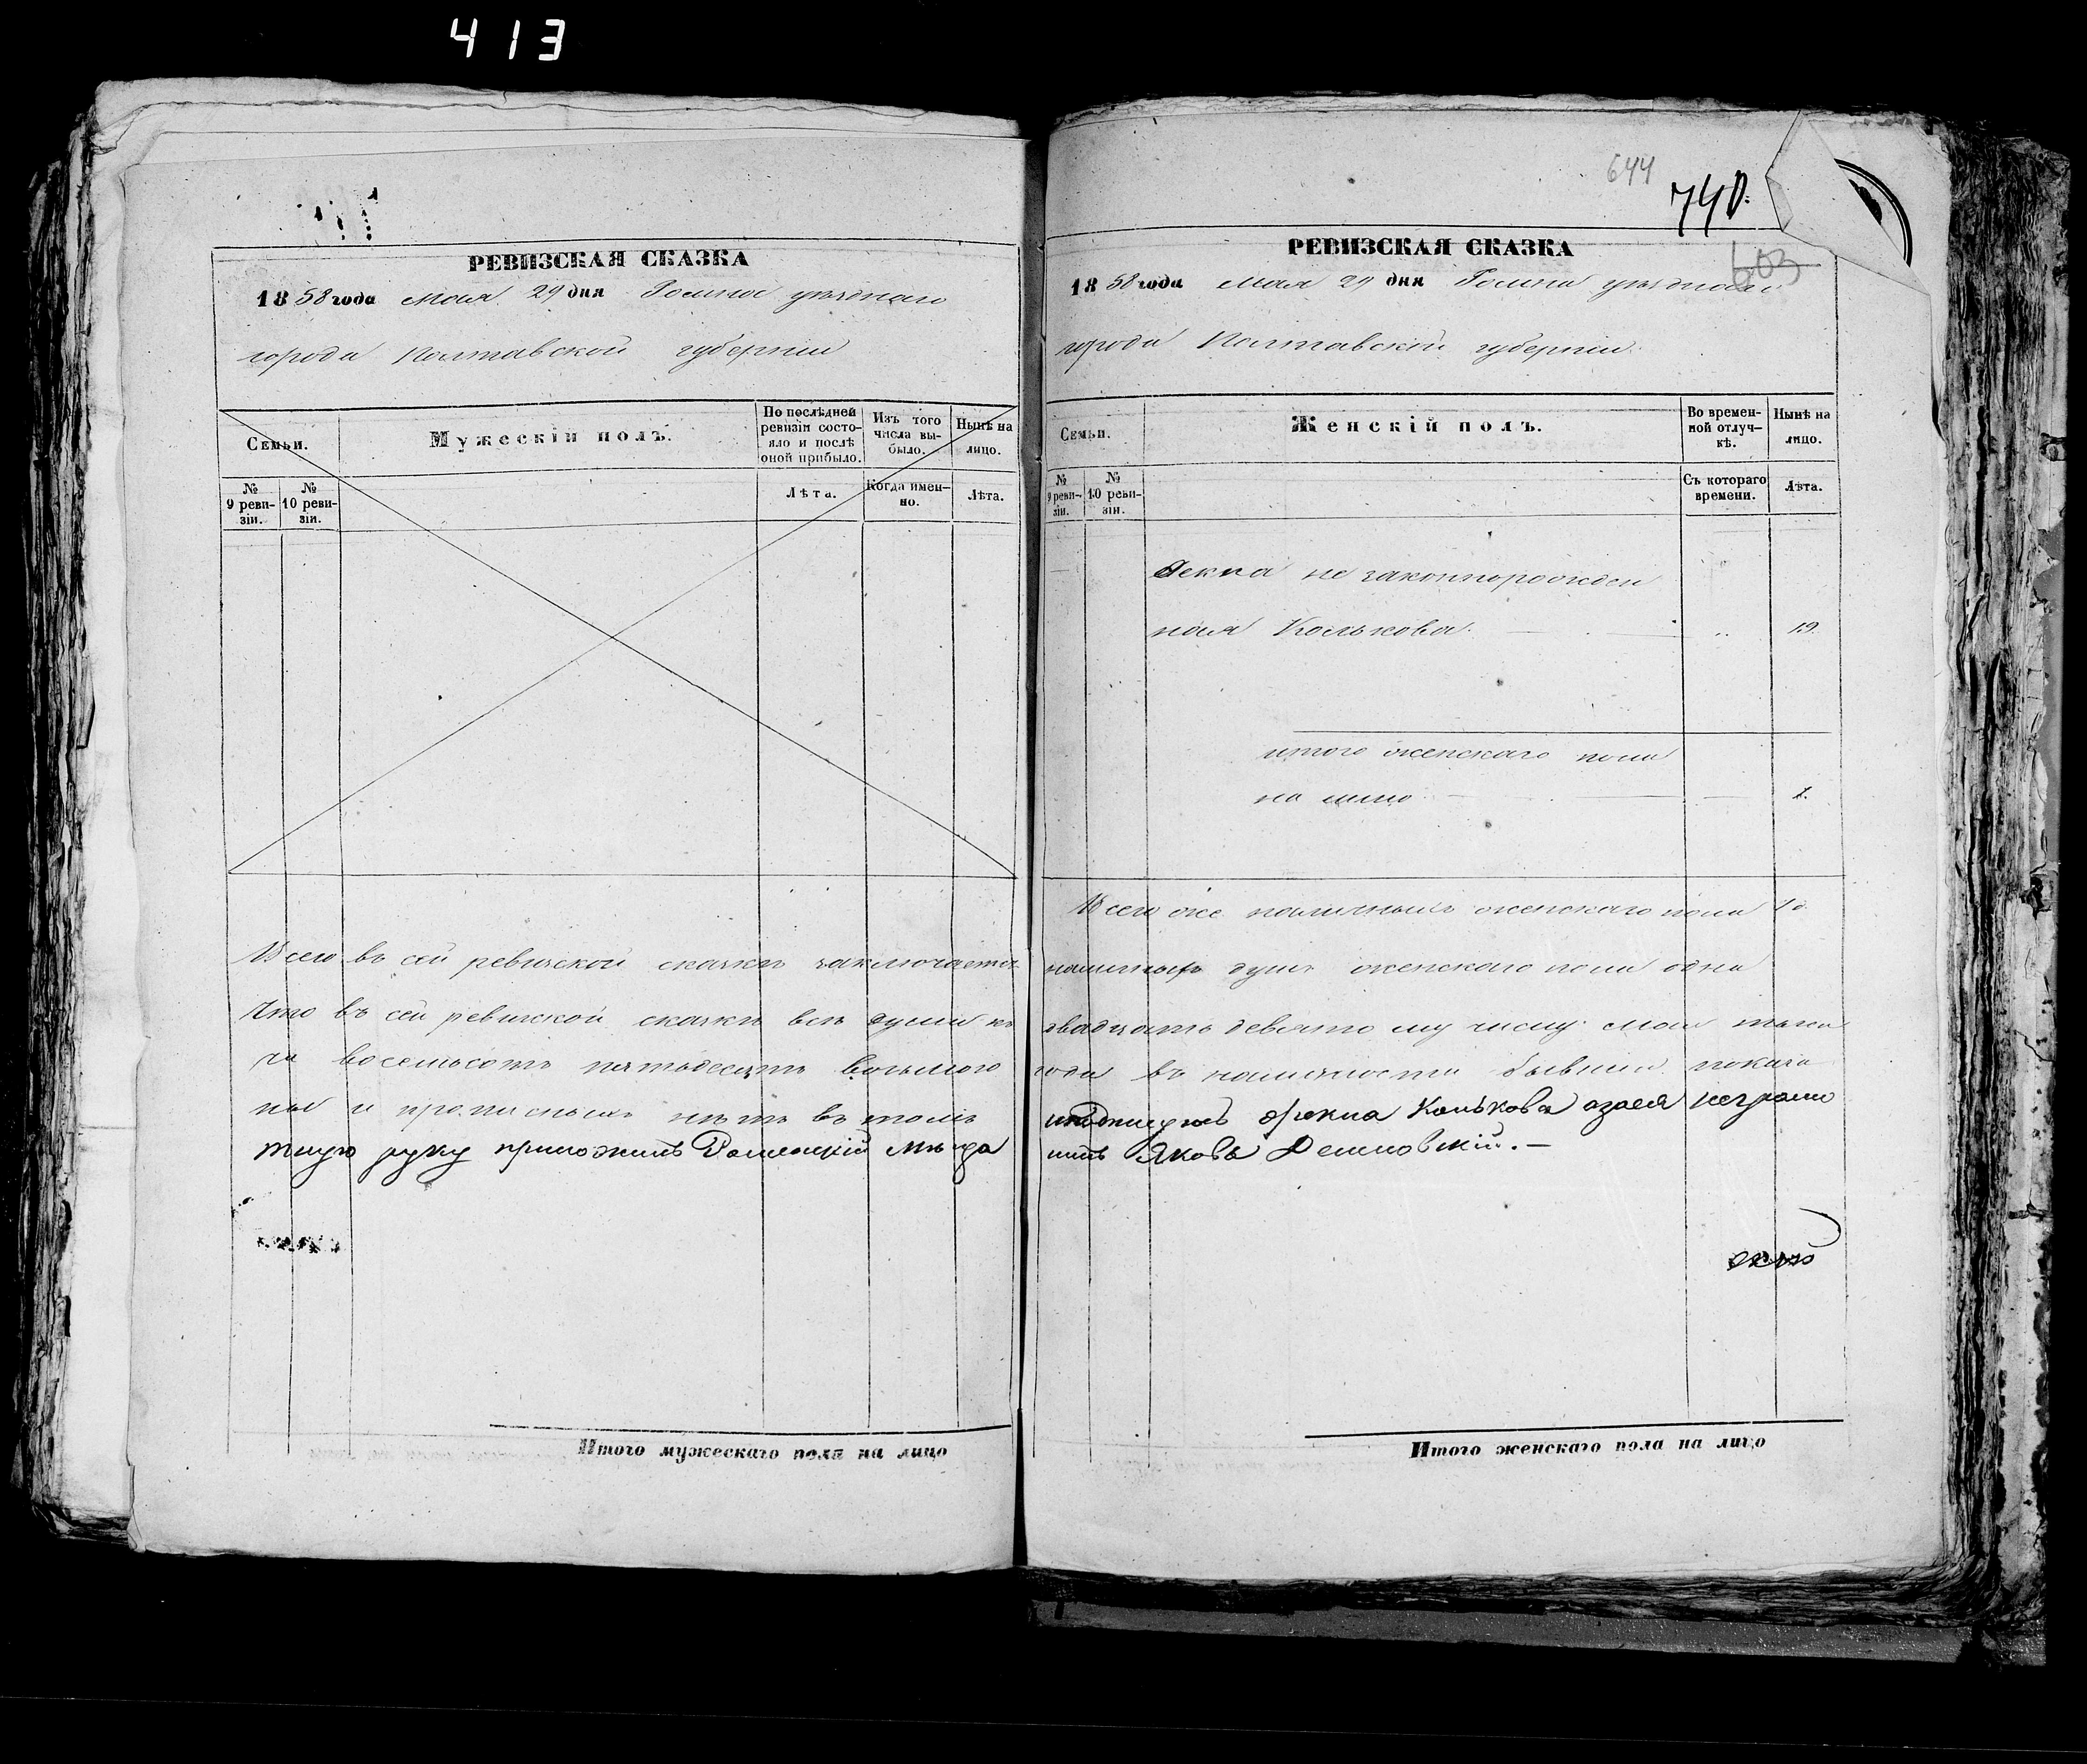 413
РЕВИЗСКАЯ СКАЗКА
1858 года Мая 29 дня Ромна уѣзднаго
города Полтавской губерніи
Семьи.
Мужескій полъ.
По послѣдней
ревизіи состо-
яло и послѣ
оной прибыло.
Изъ того
числа вы-
было.
Нынѣ на
лицо.
№
9 реви-
зіи.
№
10 реви-
зіи.
Лѣта.
Когда имен-
но.
Лѣта.
Всего въ сей ревизской сказкѣ заключается
Что въ сей ревизской сказкѣ всѣ души къ
ча восемьсотъ пятьдесятъ восьмого
ны и прописныхъ нѣтъ въ томъ
тную руку приложилъ Роменскій Мѣща
Итого мужескаго пола на лицо
644
740.
603
РЕВИЗСКАЯ СКАЗКА
1858 года Мая 29 дня Ромна уѣзднаго
города Полтавской губерніи
Семьи.
Женскій полъ.
Во времен-
ной отлуч-
кѣ.
Нынѣ на
лицо.
№
9 реви-
зіи.
№
10 реви-
зіи.
Съ котораго
времени.
Лѣта.
Фекла не законнорожден
ная Колькова. 19
итого женскаго пола
на лицо 1.
Всего же наличныхъ женскаго пола
наличныхъ душъ женскаго пола одна
двадцать девятому числу мая тыся
года въ наличности бывшія показа
Фекла Колькова азася неграмо
нинъ Яковъ
Итого женскаго пола на лицо